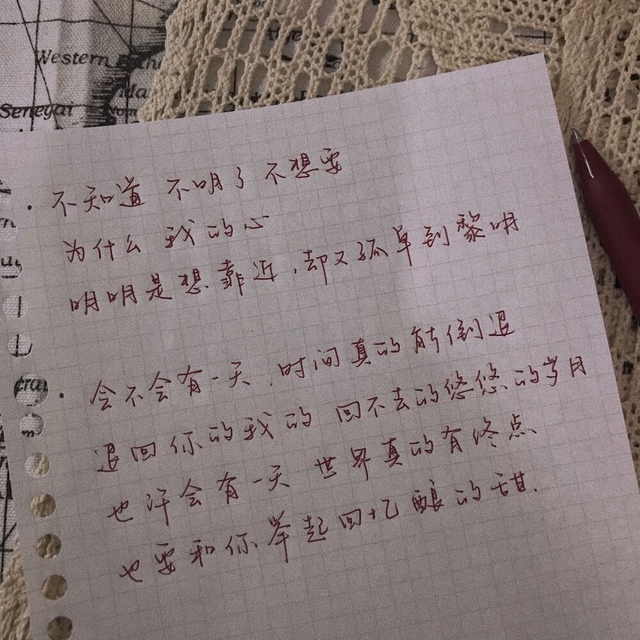 Western
Senegal
· 不知道 不明了 不想要
为什么 我的心
明明是想靠近,却又孤单到黎明
· 会不会有一天,时间真的能倒退
退回你的我的 回不去的悠悠的岁月
也许会有一天 世界真的有终点
也要和你举起回忆酿的甜.